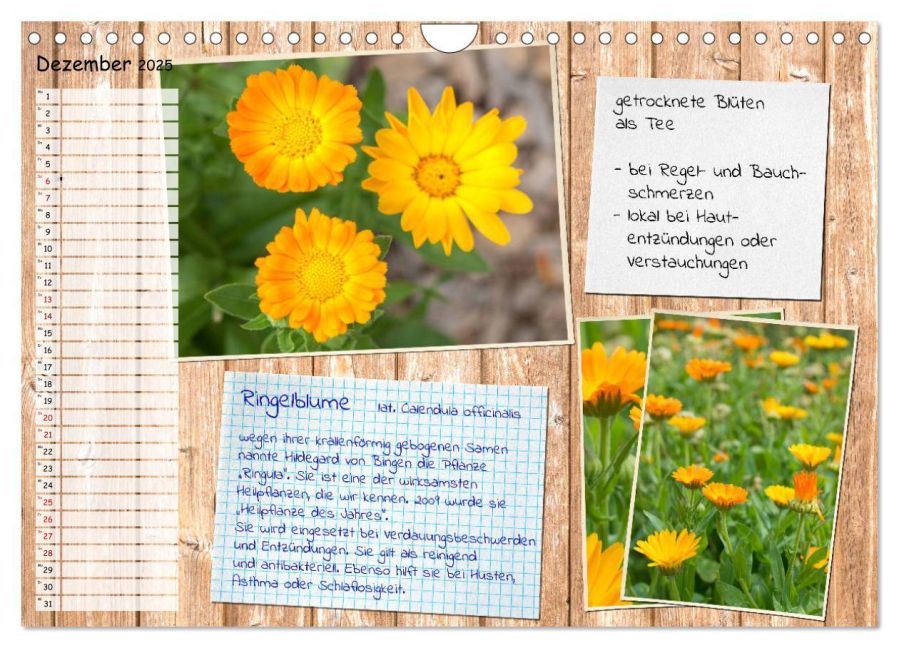 Dezember 2025
1
2
3
4
5
6
7
8
9
10
11
12
13
14
15
16
17
18
19
20
21
22
23
24
25
26
27
28
29
30
31
getrocknete Blüten
als Tee
- bei Regel- und Bauch-
schmerzen
- lokal bei Haut-
entzündungen oder
verstauchungen
Ringelblume lat. Calendula officinalis
wegen ihrer krallenförmig gebogenen Samen
nannte Hildegard von Bingen die Pflanze
„Ringula“. Sie ist eine der wirksamsten
Heilpflanzen, die wir kennen. 2009 wurde sie
„Heilpflanze des Jahres“.
Sie wird eingesetzt bei Verdauungsbeschwerden
und Entzündungen. Sie gilt als reinigend
und antibakteriell. Ebenso hilft sie bei Husten,
Asthma oder Schlaflosigkeit.